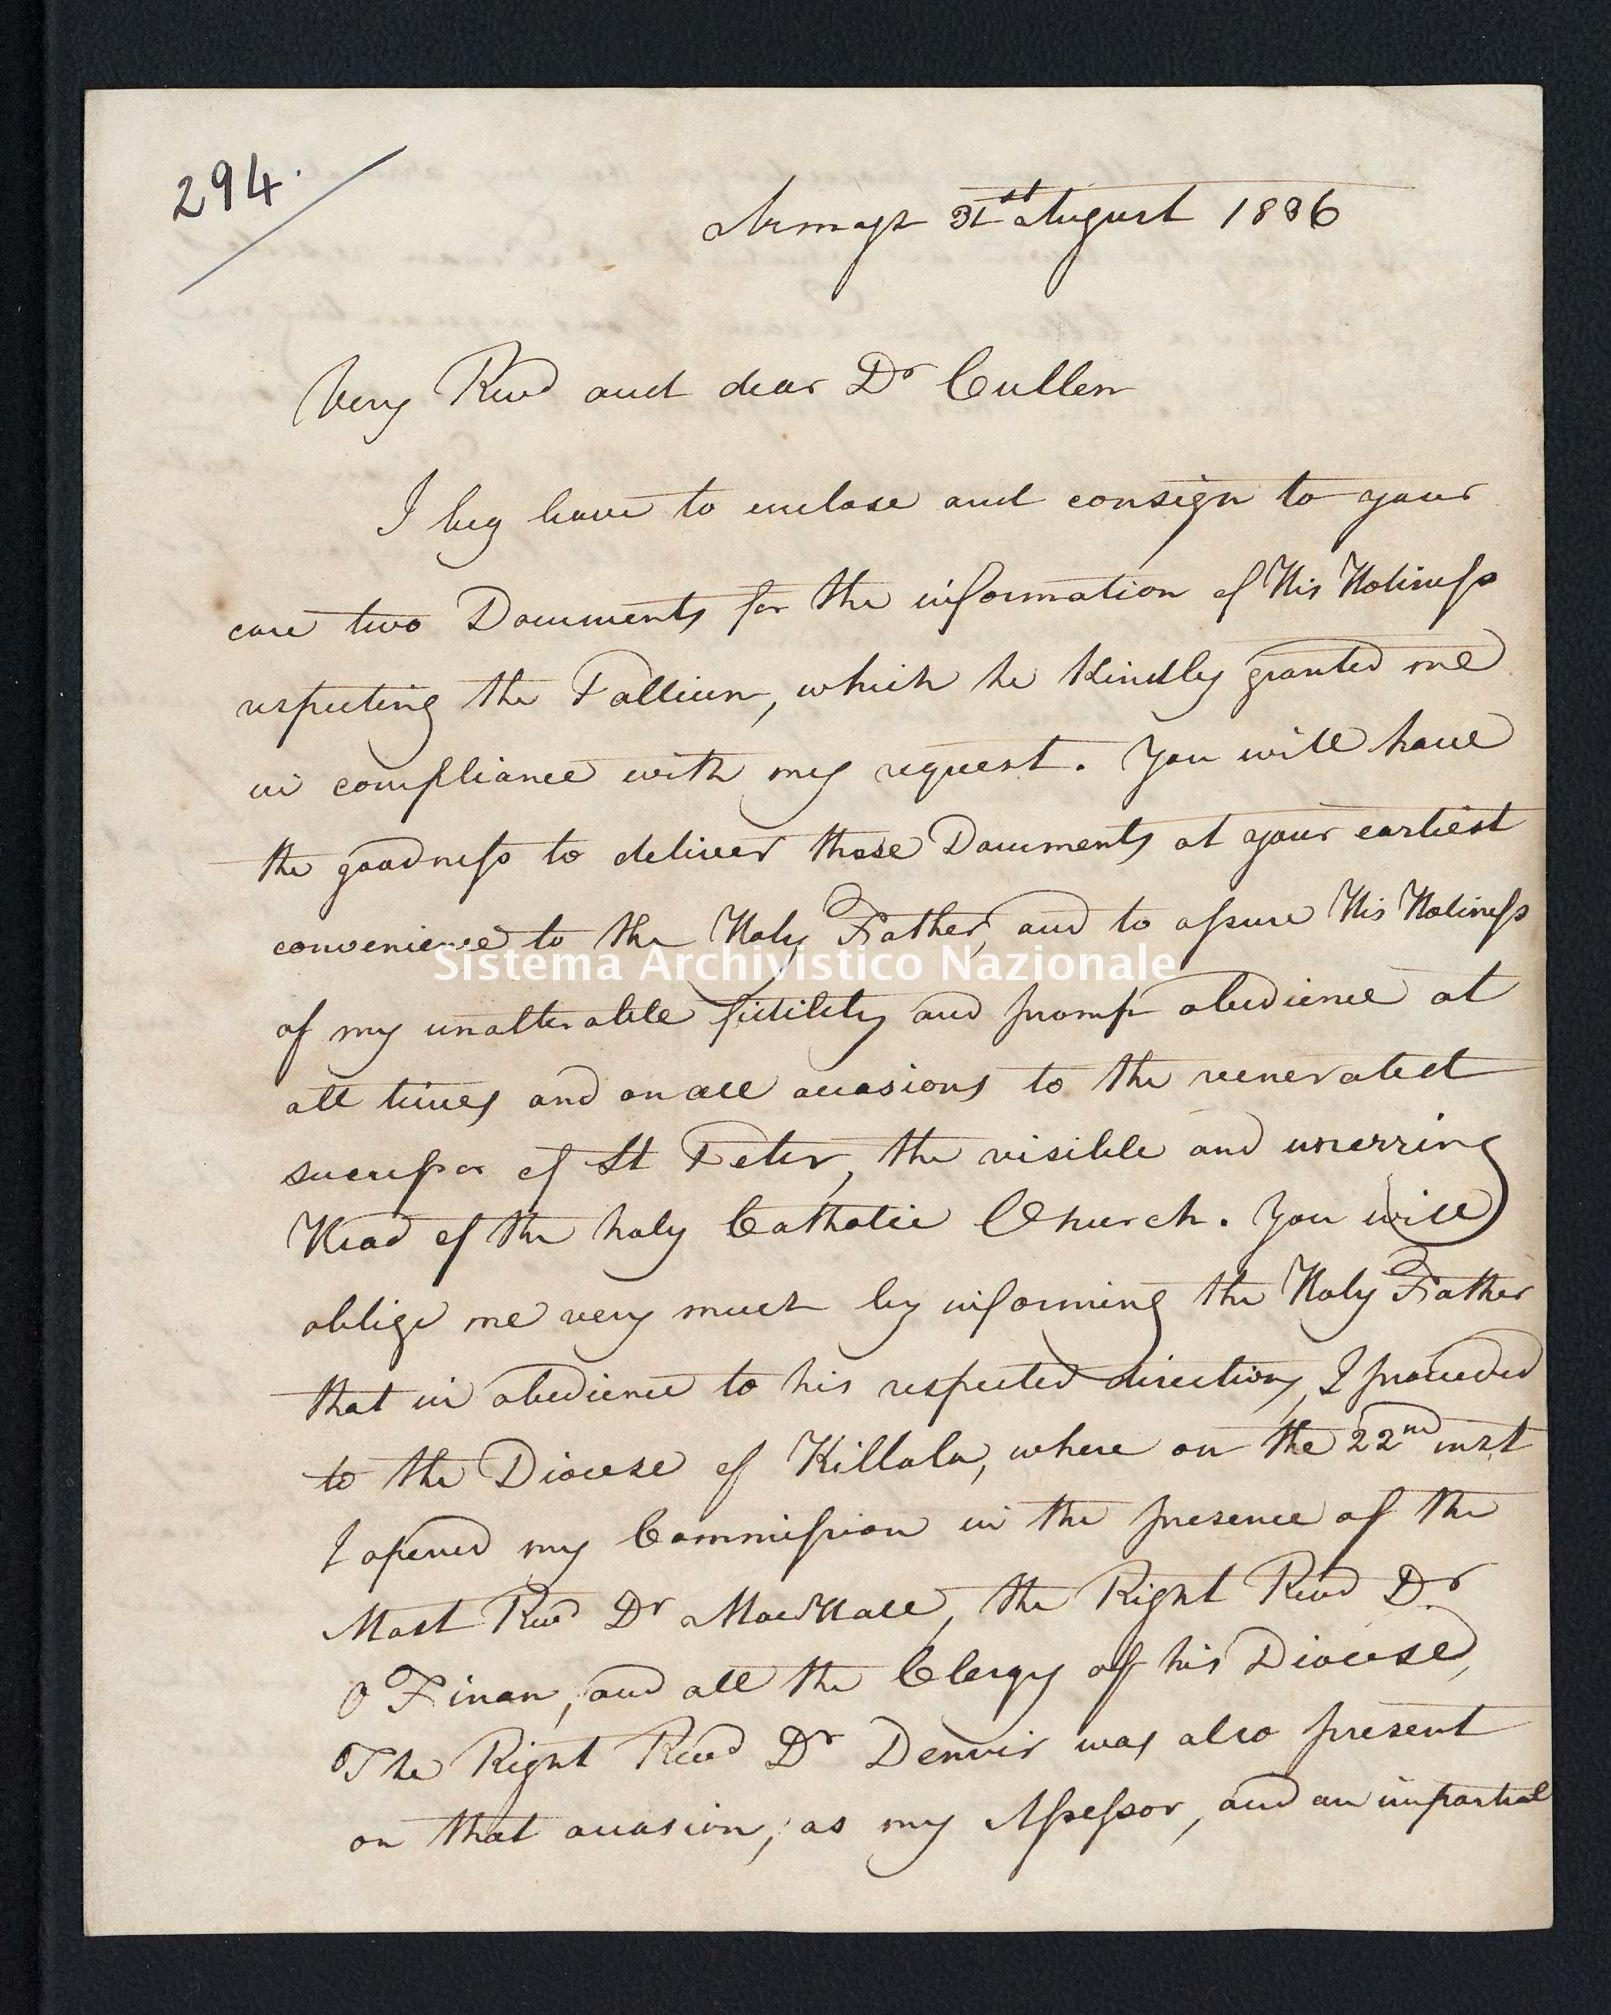 294.
Armagh 31st August 1836
Very Revd and dear Dr Cullen
I beg leave to enclose and consign to your
care two Documents for the information of His Holiness
respecting the Pallium, which he kindly granted me
in compliance with my request. You will have
the goodness to deliver those Documents at your earliest
convenience to the Holy Father, and to assure His Holiness
Sistema Archivistico Nazionale
of my unalterable fidility and promp obedience at
all times and on all occasions to the venerated
successor of St Peter, the visible and unerring
Head of the holy Catholic Church. You will
oblige me very much by informing the Holy Father
that in obedience to his respected directions, I proceeded
to the Diocese of Killala, where on the 22nd inst
I opened my Commission in the presence of the
Most Revd Dr MacHale, the Right Revd Dr
O'Finan, and all the Clergy of his Diocese,
The Right Revd Dr Denvir was also present
on that occasion, as my Assessor, and an impartial